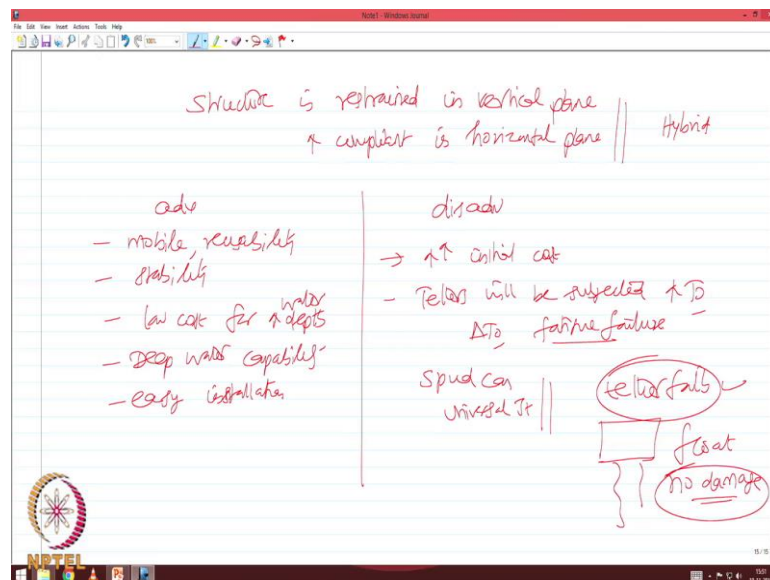 Note1 - Windows Journal
File Edit View Insert Actions Tools Help
100%
Structure is restrained in vertical plane
↑ compliant is horizontal plane
Hybrid
adv
- mobile, reusability
- stability
- low cost for ↑ water depts
- Deep water capability
- easy installation
disadv
→ ↑↑ initial cost
- Tethers will be subjected ↑ To
ΔTo fatigue failure
Spud can
universal Jt
tether fails
float
no damage
NPTEL
15/15
1551